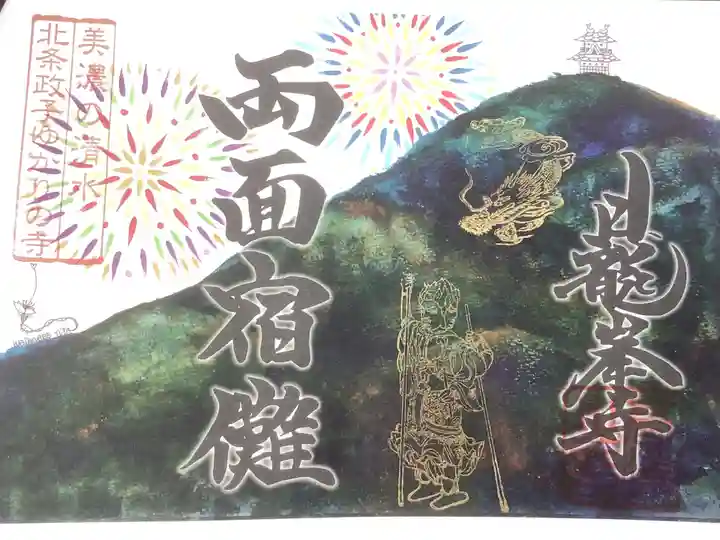 日龍峯寺
両面宿儺
美濃の清水
北条政子ゆかりの寺